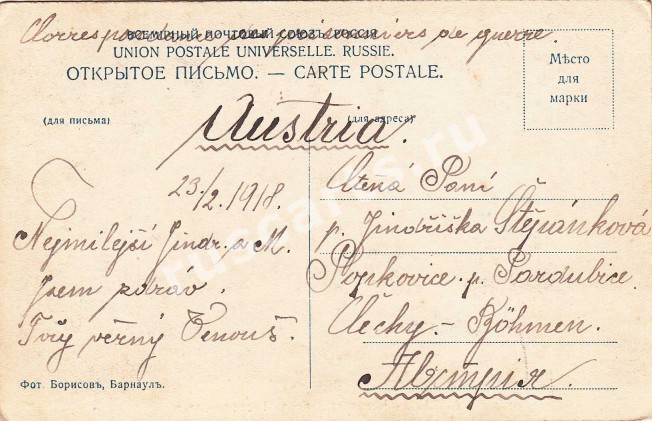 Correspondance des prisonniers de guerre.
ВСЕМІРНЫЙ ПОЧТОВЫЙ СОЮЗЪ. РОССІЯ
UNION POSTALE UNIVERSELLE. RUSSIE.
ОТКРЫТОЕ ПИСЬМО. — CARTE POSTALE.
Мѣсто
для
марки
(для письма)
(для адреса)
Austria.
23/2. 1918.
Nejmilejší Jindr. a M.
Jsem zdráv.
Tvůj věrný Venouš.
Ctěná Paní
p. Jindřiška Štěpánková
Popkovice p. Pardubice
Čechy. - Böhmen.
Австрія.
Фот. Борисовъ, Барнаулъ.
russcarts.ru